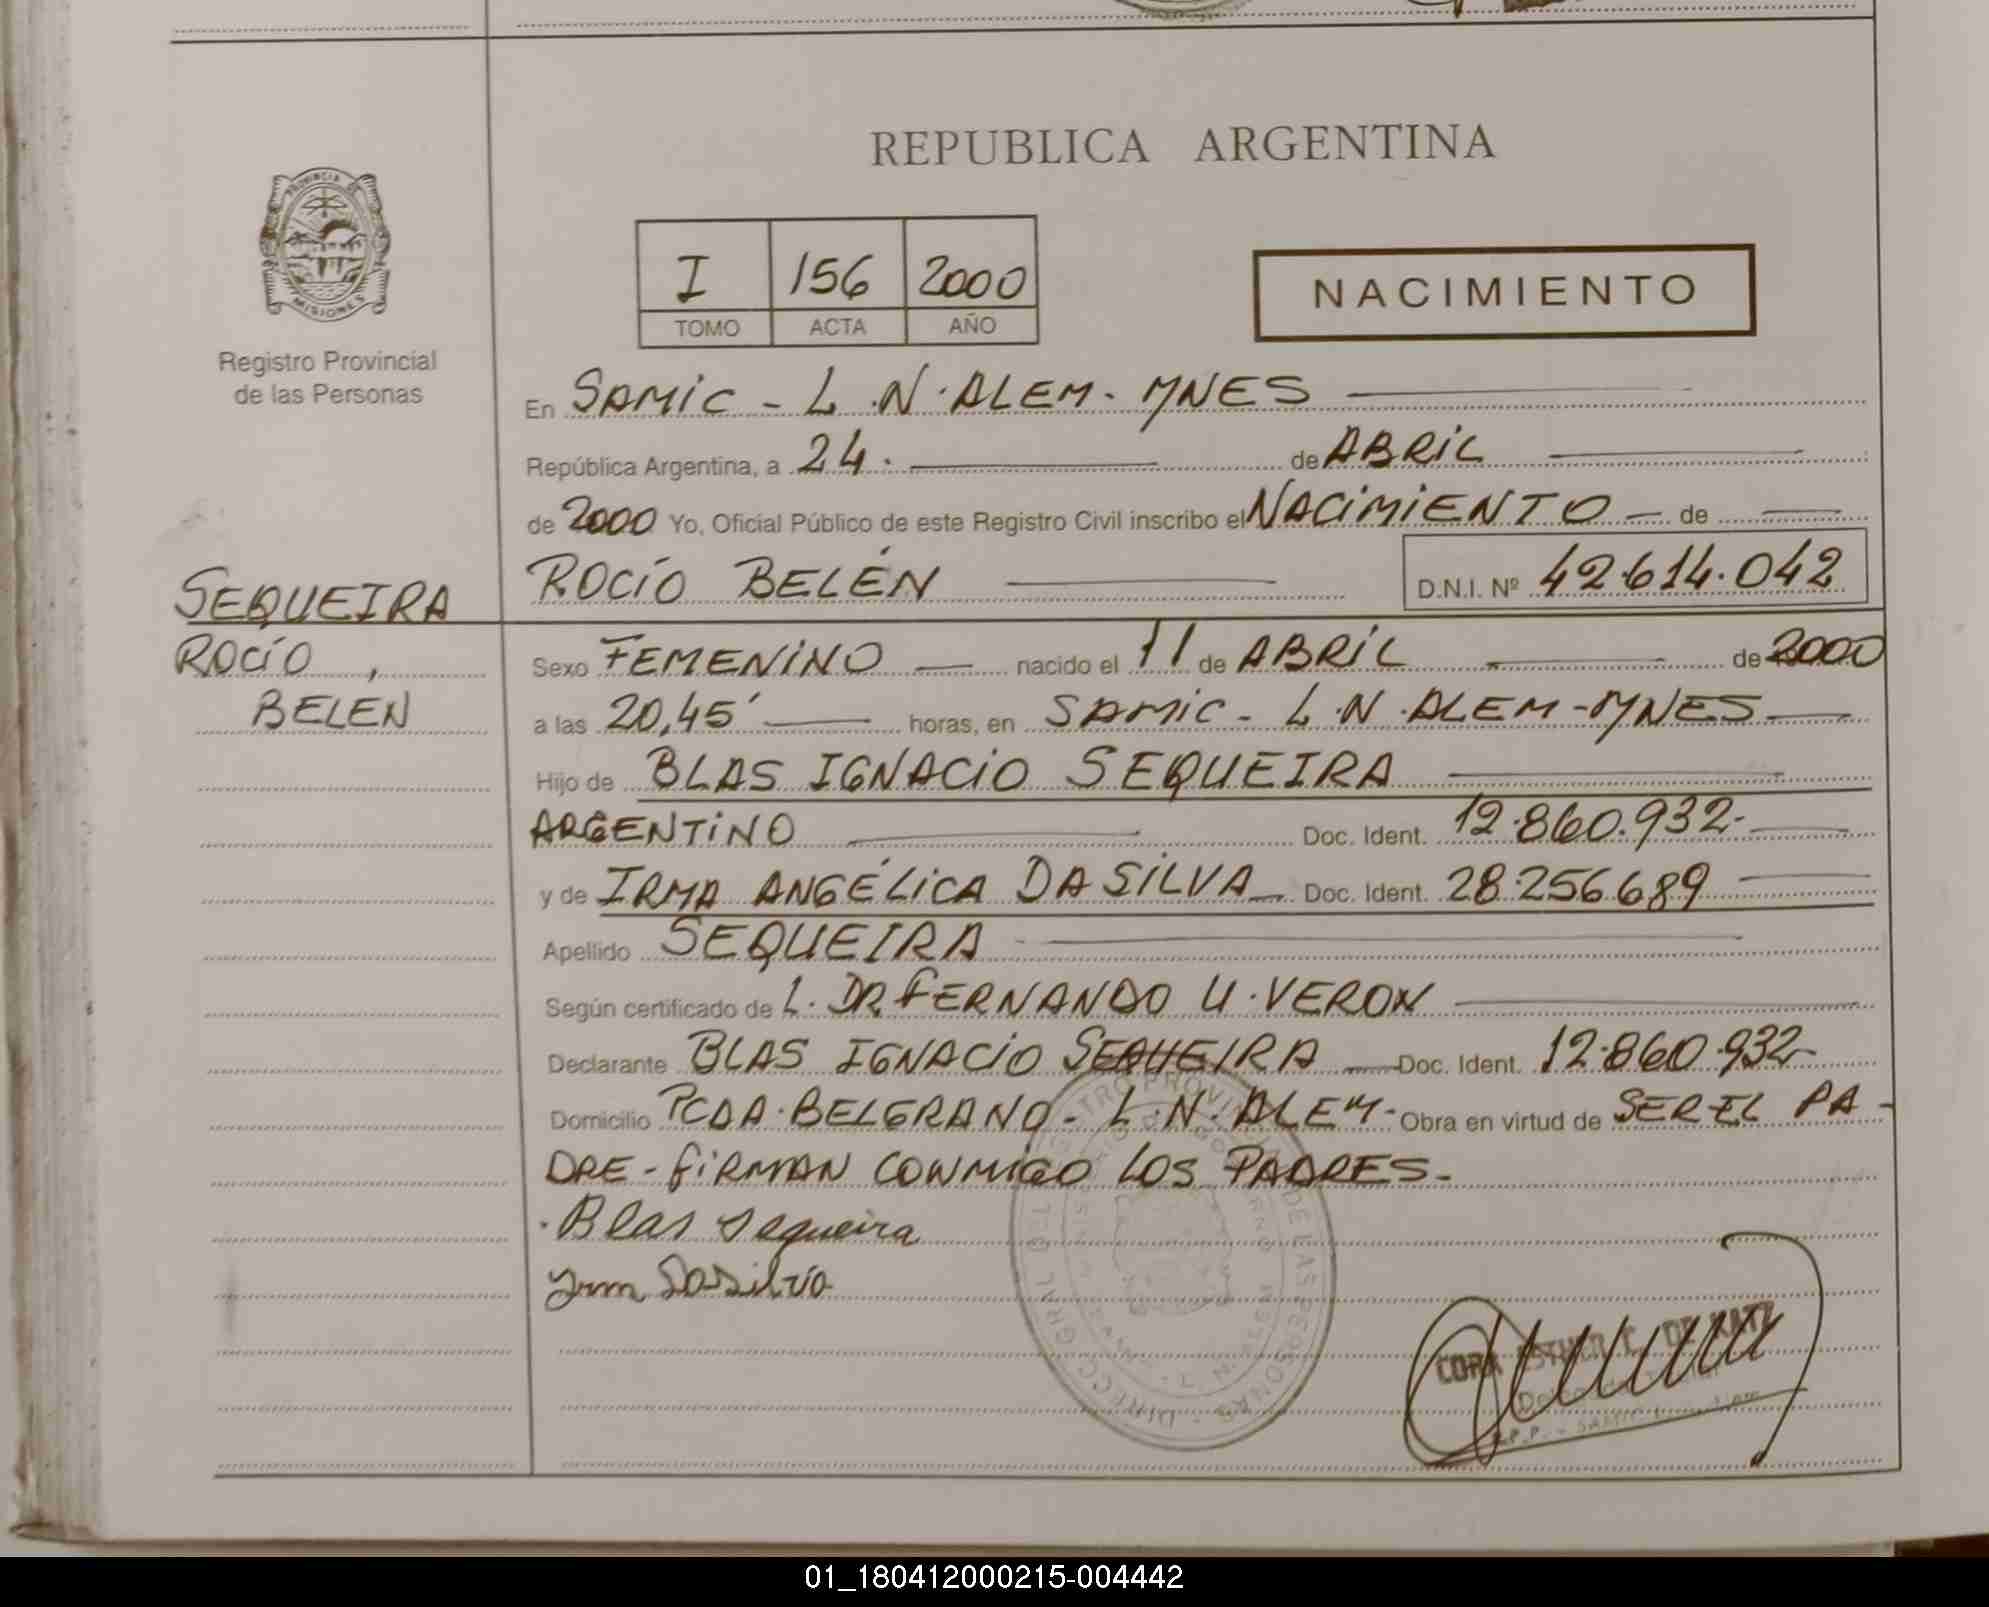 REPUBLICA ARGENTINA
PROVINCIA DE
MISIONES
Registro Provincial
de las Personas
I 156 2000
TOMO ACTA AÑO
NACIMIENTO
En SAMIC - L.N. ALEM - MNES
República Argentina, a 24. de ABRIL
de 2000 Yo, Oficial Público de este Registro Civil inscribo el NACIMIENTO de
ROCÍO BELÉN D.N.I. Nº 42.614.042
SEQUEIRA
ROCÍO,
BELEN
Sexo FEMENINO nacido el 11 de ABRIL de 2000
a las 20,45' horas, en SAMIC - L.N. ALEM - MNES
Hijo de BLAS IGNACIO SEQUEIRA
ARGENTINO Doc. Ident. 12.860.932-
y de IRMA ANGÉLICA DA SILVA Doc. Ident. 28.256.689
Apellido SEQUEIRA
Según certificado de L. DR. FERNANDO U. VERON
Declarante BLAS IGNACIO SEQUEIRA Doc. Ident. 12.860.932-
Domicilio PCDA. BELGRANO - L.N. ALEM - Obra en virtud de SER EL PA-
DRE - FIRMAN CONMIGO LOS PADRES-
Blas Sequeira
Irm Dasilva
CORA ESTHER C. DE KATZ
01_180412000215-004442